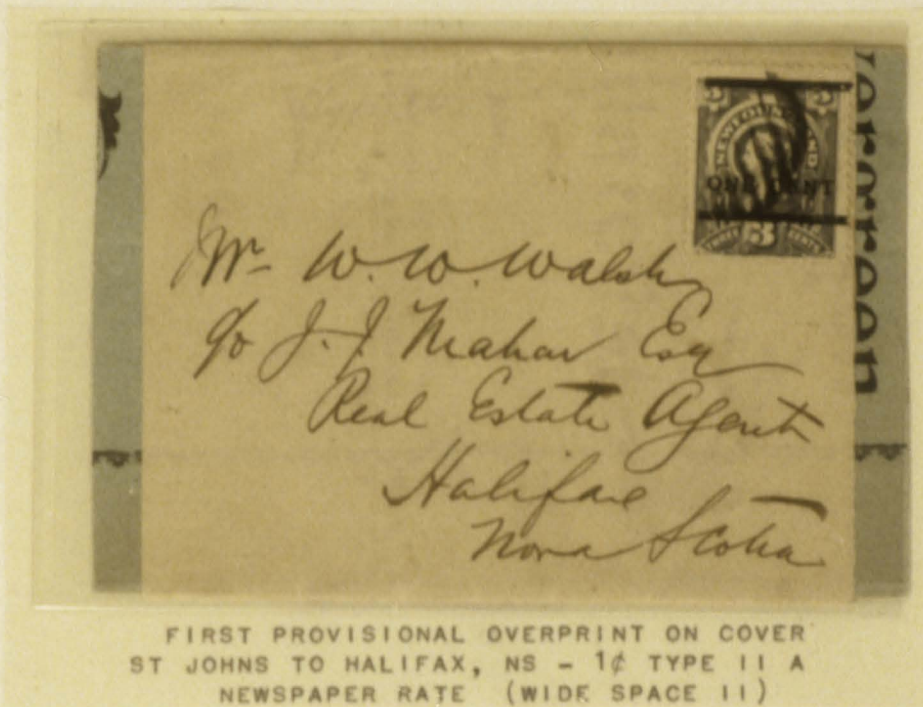 3 3
NEWFOUNDLAND
ONE CENT
THREE 3 CENTS
Mr- W. W. Walsh
c/o J. J. Mahar Esq
Real Estate Agent
Halifax
Nova Scotia
FIRST PROVISIONAL OVERPRINT ON COVER
ST JOHNS TO HALIFAX, NS - 1¢ TYPE II A
NEWSPAPER RATE (WIDE SPACE II)